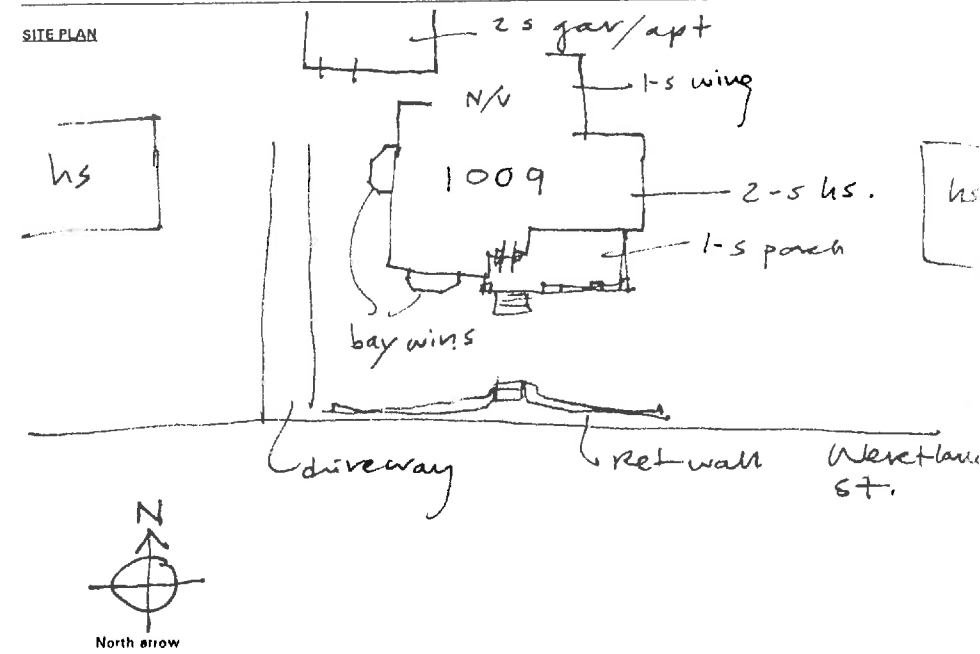 SITE PLAN
2 s gar/apt
1-s wing
N/V
hs
1009
2-s hs.
hs
1-s porch
bay wins
driveway
Ret wall
st.
N
North arrow